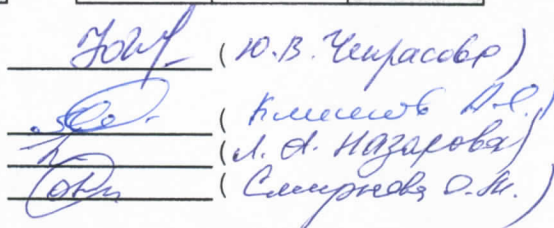 (Ю.В. Чепрасова)
(Климов А.С.)
(Л.А. Назарова)
(Смирнова О.М.)